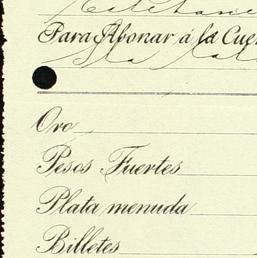 Para Abonar á la Cue
Oro
Pesos Fuertes
Plata menuda
Billetes